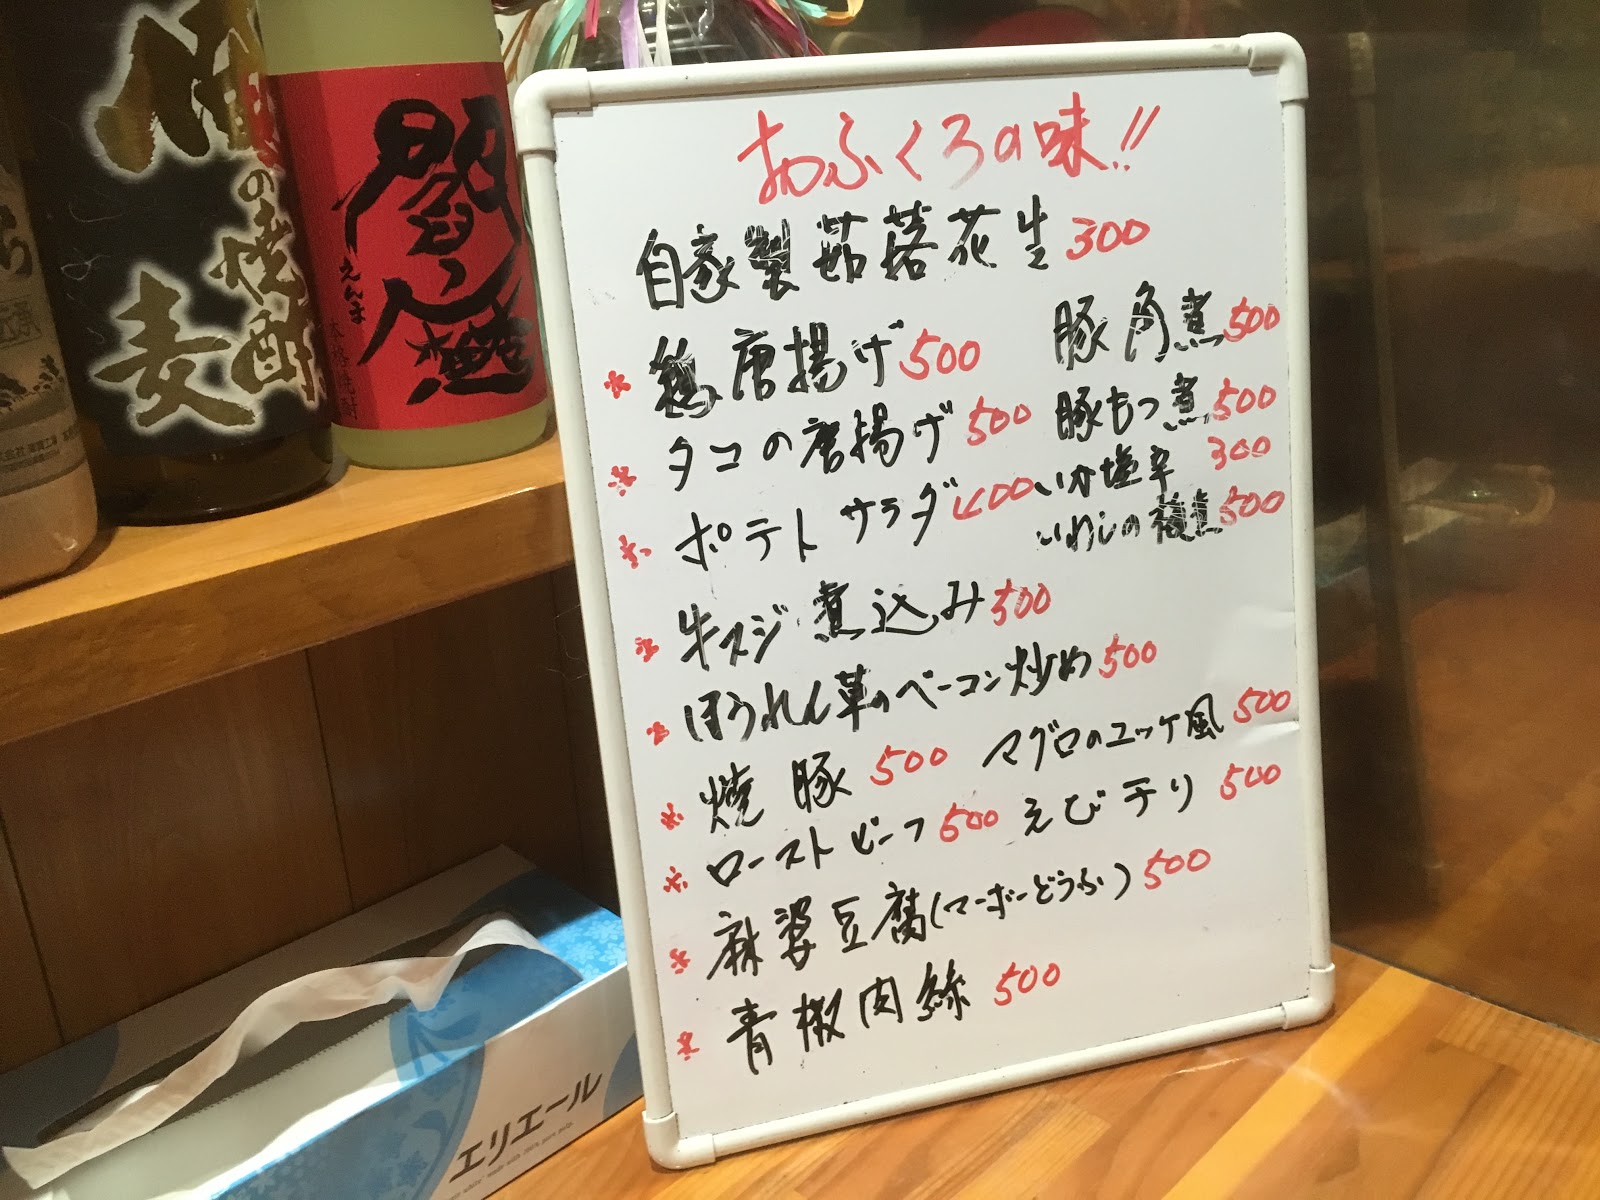 の焼酎
麦
閻魔
えんま
本格焼酎
樽
おふくろの味!!
自家製茹落花生 300
* 鶏唐揚げ 500
豚角煮 500
* タコの唐揚げ 500
豚もつ煮 500
* ポテトサラダ 400
いか塩辛 300
いわしの梅煮 500
* 牛スジ煮込み 500
* ほうれん草のベーコン炒め 500
* 焼豚 500
マグロのユッケ風 500
* ローストビーフ 500
えびチリ 500
* 麻婆豆腐(マーボーどうふ) 500
* 青椒肉絲 500
エリエール